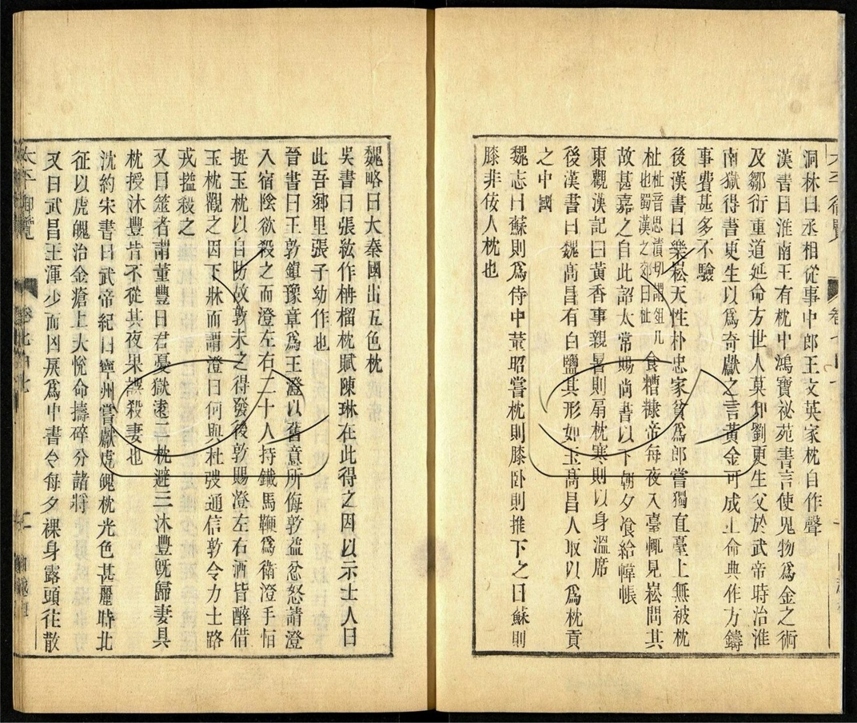 洞林曰丞相從事中郎王文英家枕自作聲
漢書曰淮南王有枕中鴻寶祕苑書言使鬼物為金之術
及鄒衍重道延命方世人莫知劉更生父於武帝時治淮
南獄得書更生以為奇獻之言黃金可成上命典作方鑄
事費甚多不驗
後漢書曰樂崧天性朴忠家貧為郎嘗獨直臺上無被枕
杫食糟糠帝每夜入臺輒見崧問其
故甚嘉之自此詔太常賜尚書以下朝夕飡給幃帳
東觀漢記曰黃香事親暑則扇枕寒則以身溫席
後漢書曰魏高昌有白鹽其形如玉高昌人取以為枕貢
之中國
魏志曰蘇則為侍中董昭嘗枕則膝臥則推下之曰蘇則
膝非佞人枕也
太平御覽
魏略曰大秦國出五色枕
吳書曰張紘作柟榴枕賦陳琳在此得之因以示士人曰
此吾鄉里張子幼作也
晉書曰王敦鎮豫章為王澄以舊意所侮敦益忿怒請澄
入宿陰欲殺之而澄左右二十人持鐵馬鞭為衛澄手恒
捉玉枕以自防故敦未之得發後敦賜澄左右酒皆醉借
玉枕觀之因下牀而謂澄曰何與杜弢通信敦令力士路
戎搤殺之
又曰筮者謂董豐曰君憂獄遠三枕避三沐豐旣歸妻具
枕授沐豐皆不從其夜果誤殺妻也
沈約宋書曰武帝紀曰寧州嘗獻虎魄枕光色甚麗時北
征以虎魄治金瘡上大悅命擣碎分諸將
又曰武昌王渾少而凶戾為中書令每夕裸身露頭往散